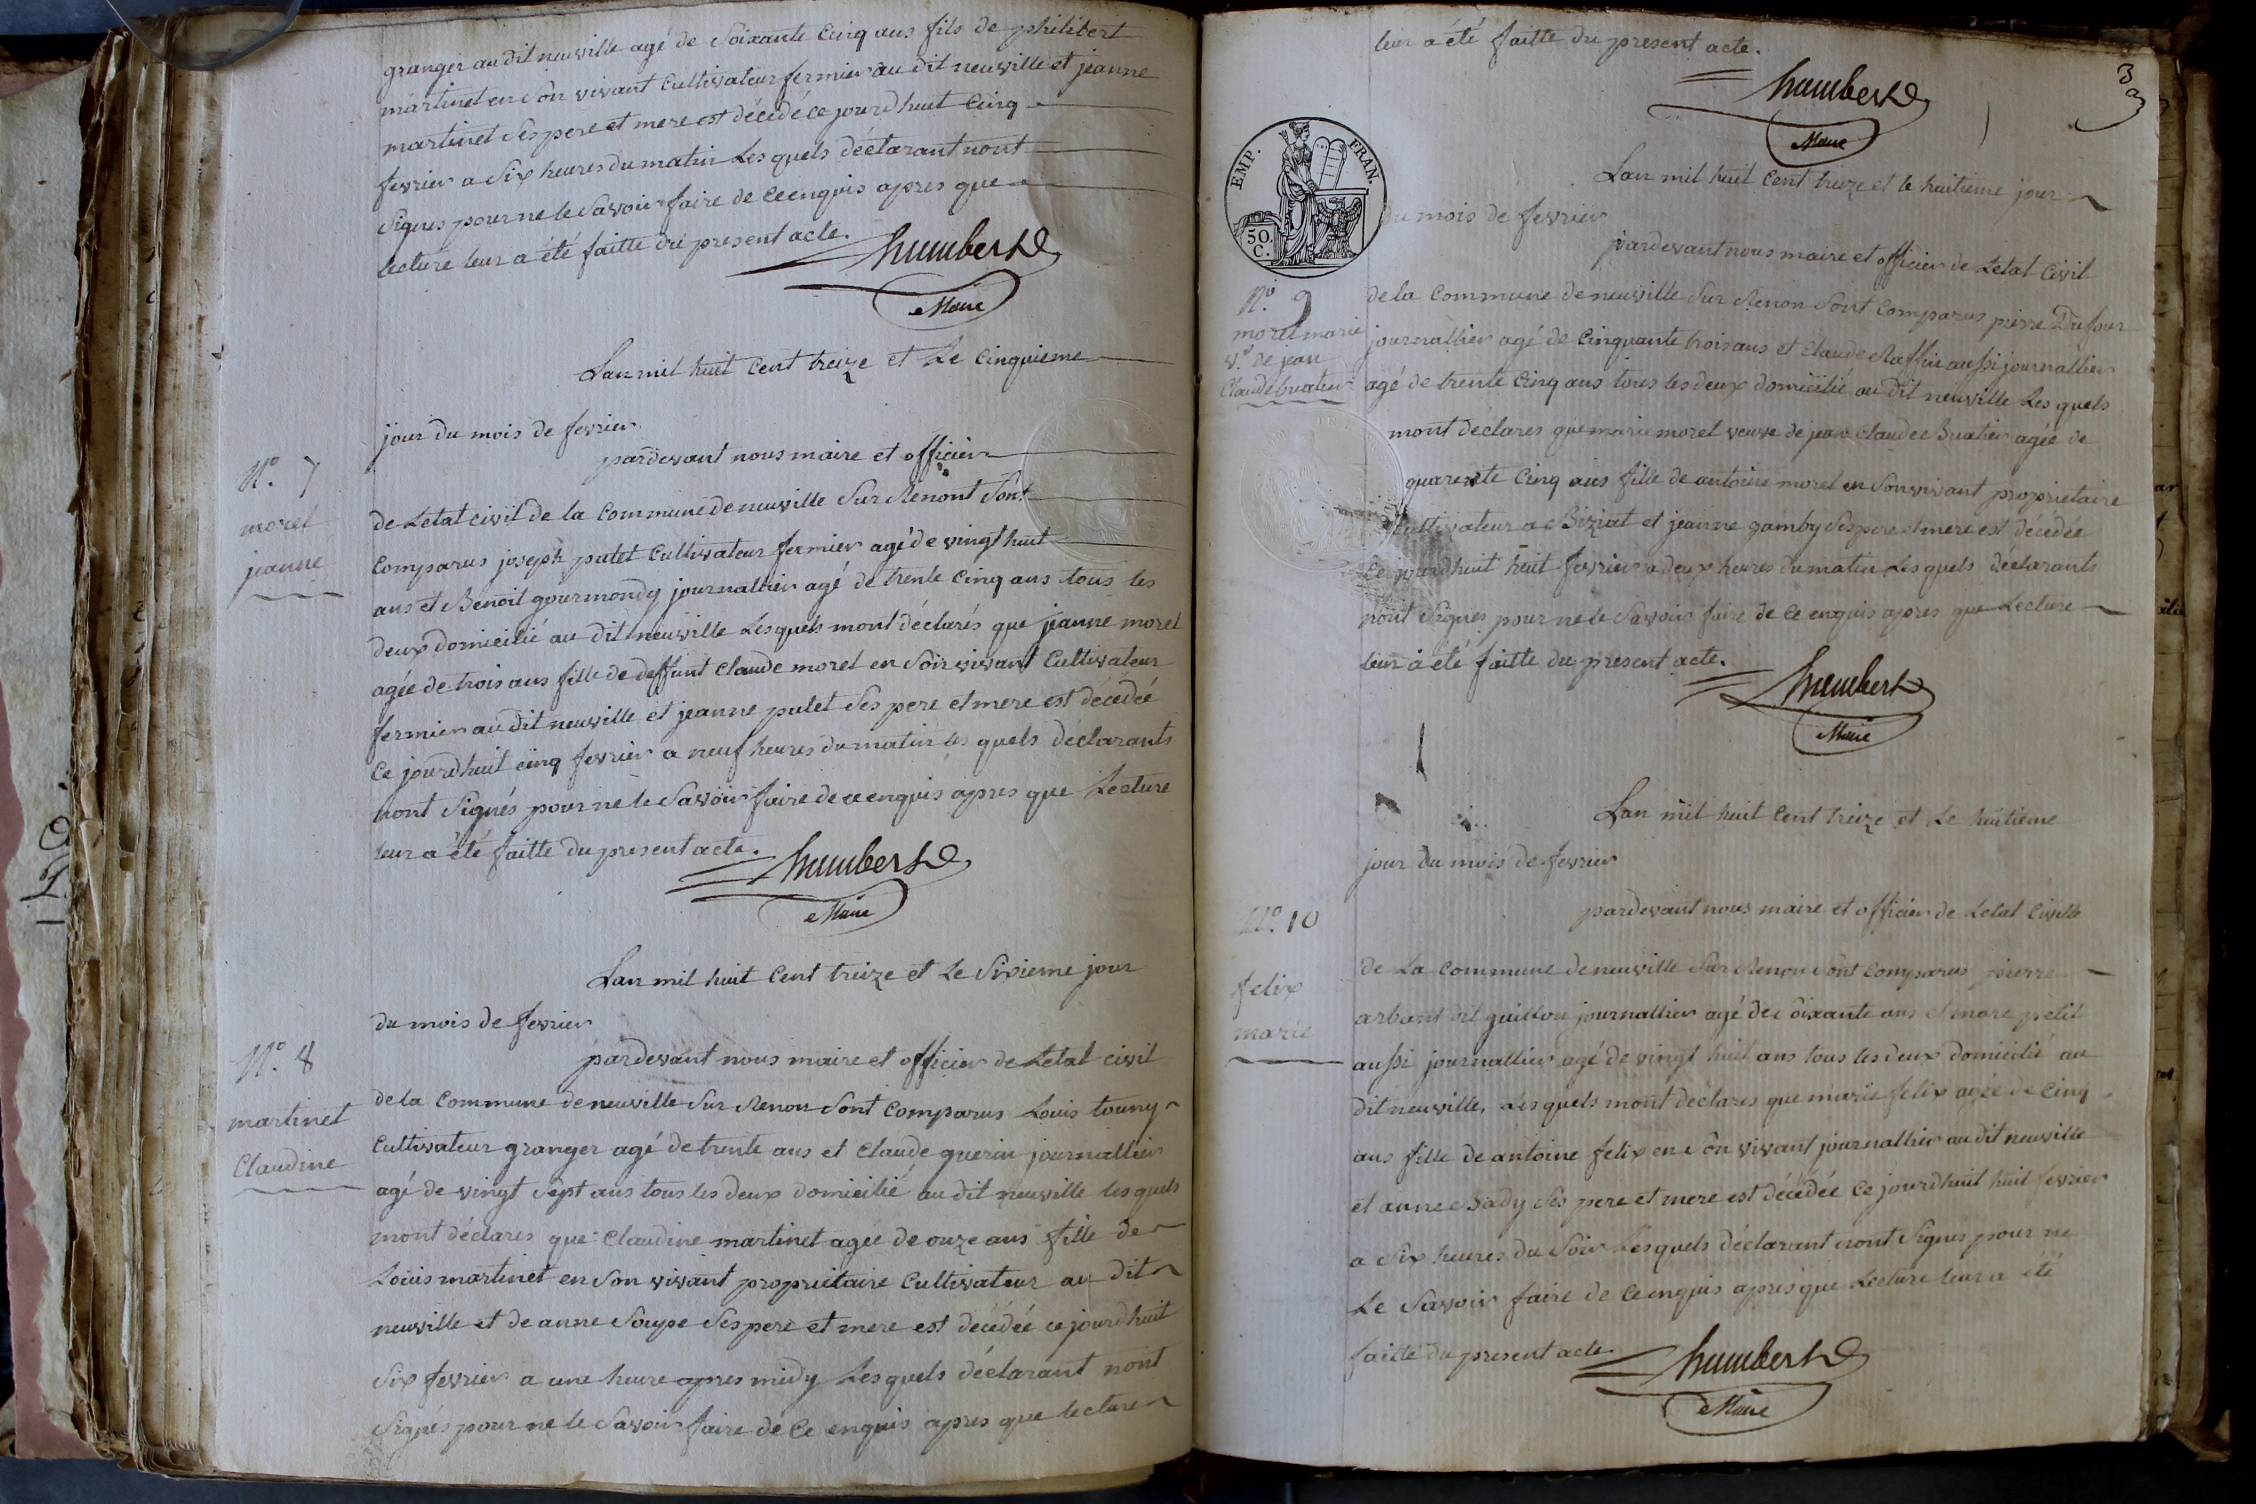 granger au dit neuville agé de Soixante Cinq ans fils de philibert
martinet en son vivant Cultivateur fermier au dit neuville et jeanne
martinet Ses pere et mere est décédé ce jourdhuit Cinq
fevrier a Six heures du matin Les quels déclarant nont
Signes pour ne le Savoir faire de ce enquis apres que
lecture leur a été faitte du present acte.
humbert
Maire
Lan mil huit Cent treize et Le Cinquieme
jour du mois de fevrier
pardevant nous maire et officier
N.º 7
morel
jeanne
de Letat civil de la Commune de neuville Sur Renont Sont
Comparus joseph putet Cultivateur fermier agé de vingt huit
ans et Benoit gourmondy journallier agé de trente Cinq ans tous les
deux domicilié au dit neuville Lesquels mont déclarés que jeanne morel
agée de trois ans fille de deffunt Claude morel en Son vivant Cultivateur
fermier au dit neuville et jeanne putet Ses pere et mere est décédée
Ce jourdhuit cinq fevrier a neuf heures du matin les quels déclarants
nont Signés pour ne le Savoir faire de ce enquis apres que Lecture
leur a été faitte du present acte.
humbert
Maire
Lan mil huit Cent treize et Le Sixieme jour
du mois de fevrier
pardevant nous maire et officier de Letat civil
N.º 8
martinet
Claudine
de la Commune de neuville Sur Renon Sont Comparus Louis touny
Cultivateur granger agé de trente ans et Claude guerin journallier
agé de vingt Sept ans tous les deux domicilié au dit neuville les quels
mont déclares que Claudine martinet agée de onze ans fille de
Louis martinet en Son vivant proprietaire Cultivateur au dit
neuville et de anne Soupe Ses pere et mere est décédée ce jourdhuit
Six fevrier a une heure apres midy Lesquels déclarant nont
Signés pour ne le Savoir faire de Ce enquis apres que lecture
leur a été faitte du present acte.
humbert
Maire
3
EMP. FRAN.
50.
C.
Lan mil huit Cent treize et le huitieme jour
du mois de fevrier
pardevant nous maire et officier de Letat Civil
N.º 9
morel marie
v.e de jean
Claude buatier
de la Commune de neuville Sur Renon Sont Comparus pierre Dufour
journallier agé de Cinquante trois ans et Claude Raffin aussi journallier
agé de trente Cinq ans tous les deux domicilié au dit neuville Les quels
mont déclares que marie morel veuve de jean Claude Buatier agée de
quarente Cinq ans fille de antoine morel en Son vivant proprietaire
Cultivateur a Biziat et jeanne gamby Ses pere et mere est décédée
Ce jourdhuit huit fevrier a deux heures du matin Les quels déclarants
nont Signes pour ne le Savoir faire de Ce enquis apres que Lecture
leur a été faitte du present acte.
humbert
Maire
Lan mil huit Cent treize et Le huitieme
jour du mois de fevrier
pardevant nous maire et officier de Letat Civille
N.º 10
felix
marie
de La Commune de neuville Sur Renon Sont Comparus pierre
arbant dit guillon journallier agé de Soixante ans et marc petit
aussi journallier agé de vingt huit ans tous les deux domicilié au
dit neuville, Lesquels mont déclares que marie felix agée de Cinq
ans fille de antoine felix en Son vivant journallier au dit neuville
et anne Bady Ses pere et mere est décédée Ce jourdhuit huit fevrier
a Six heures du Soir Lesquels déclarant nont Signés pour ne
Le Savoir faire de Ce enquis apres que Lecture leur a été
faitte du present acte
humbert
Maire